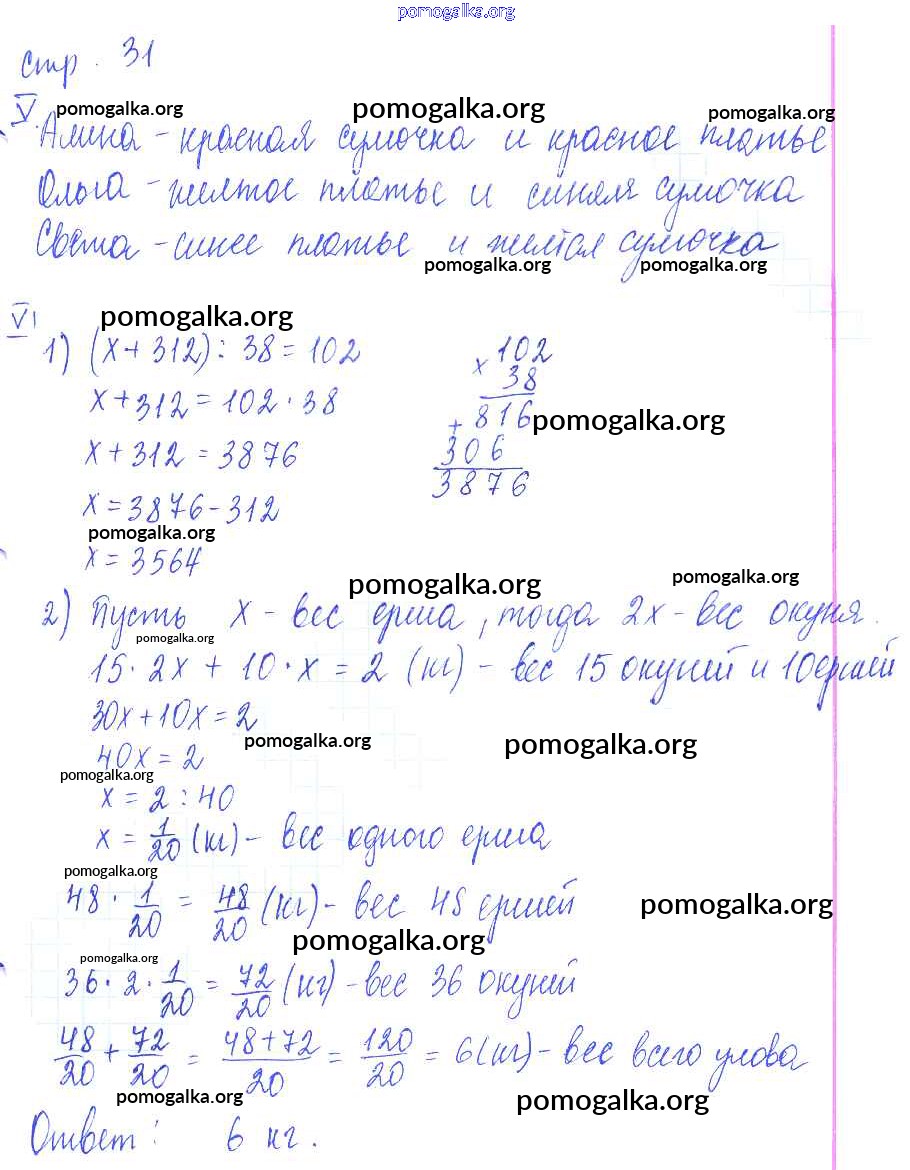 pomogalka.org
стр. 31
V pomogalka.org pomogalka.org pomogalka.org
Алина - красная сумочка и красное платье
Ольга - желтое платье и синяя сумочка
Света - синее платье и желтая сумочка
pomogalka.org pomogalka.org
VI pomogalka.org
1) (x + 312) : 38 = 102
x + 312 = 102 · 38
x + 312 = 3876
x = 3876 - 312
pomogalka.org
x = 3564
× 102
38
+ 816 pomogalka.org
306
3876
pomogalka.org pomogalka.org
2) Пусть x - вес ерша, тогда 2x - вес окуня.
pomogalka.org
15 · 2x + 10 · x = 2 (кг) - вес 15 окуней и 10 ершей
30x + 10x = 2
pomogalka.org pomogalka.org
40x = 2
pomogalka.org
x = 2 : 40
x = 1/20 (кг) - вес одного ерша
pomogalka.org
48 · 1/20 = 48/20 (кг) - вес 48 ершей pomogalka.org
pomogalka.org
pomogalka.org
36 · 2 · 1/20 = 72/20 (кг) - вес 36 окуней
48/20 + 72/20 = 48+72/20 = 120/20 = 6 (кг) - вес всего улова
pomogalka.org pomogalka.org
Ответ: 6 кг.